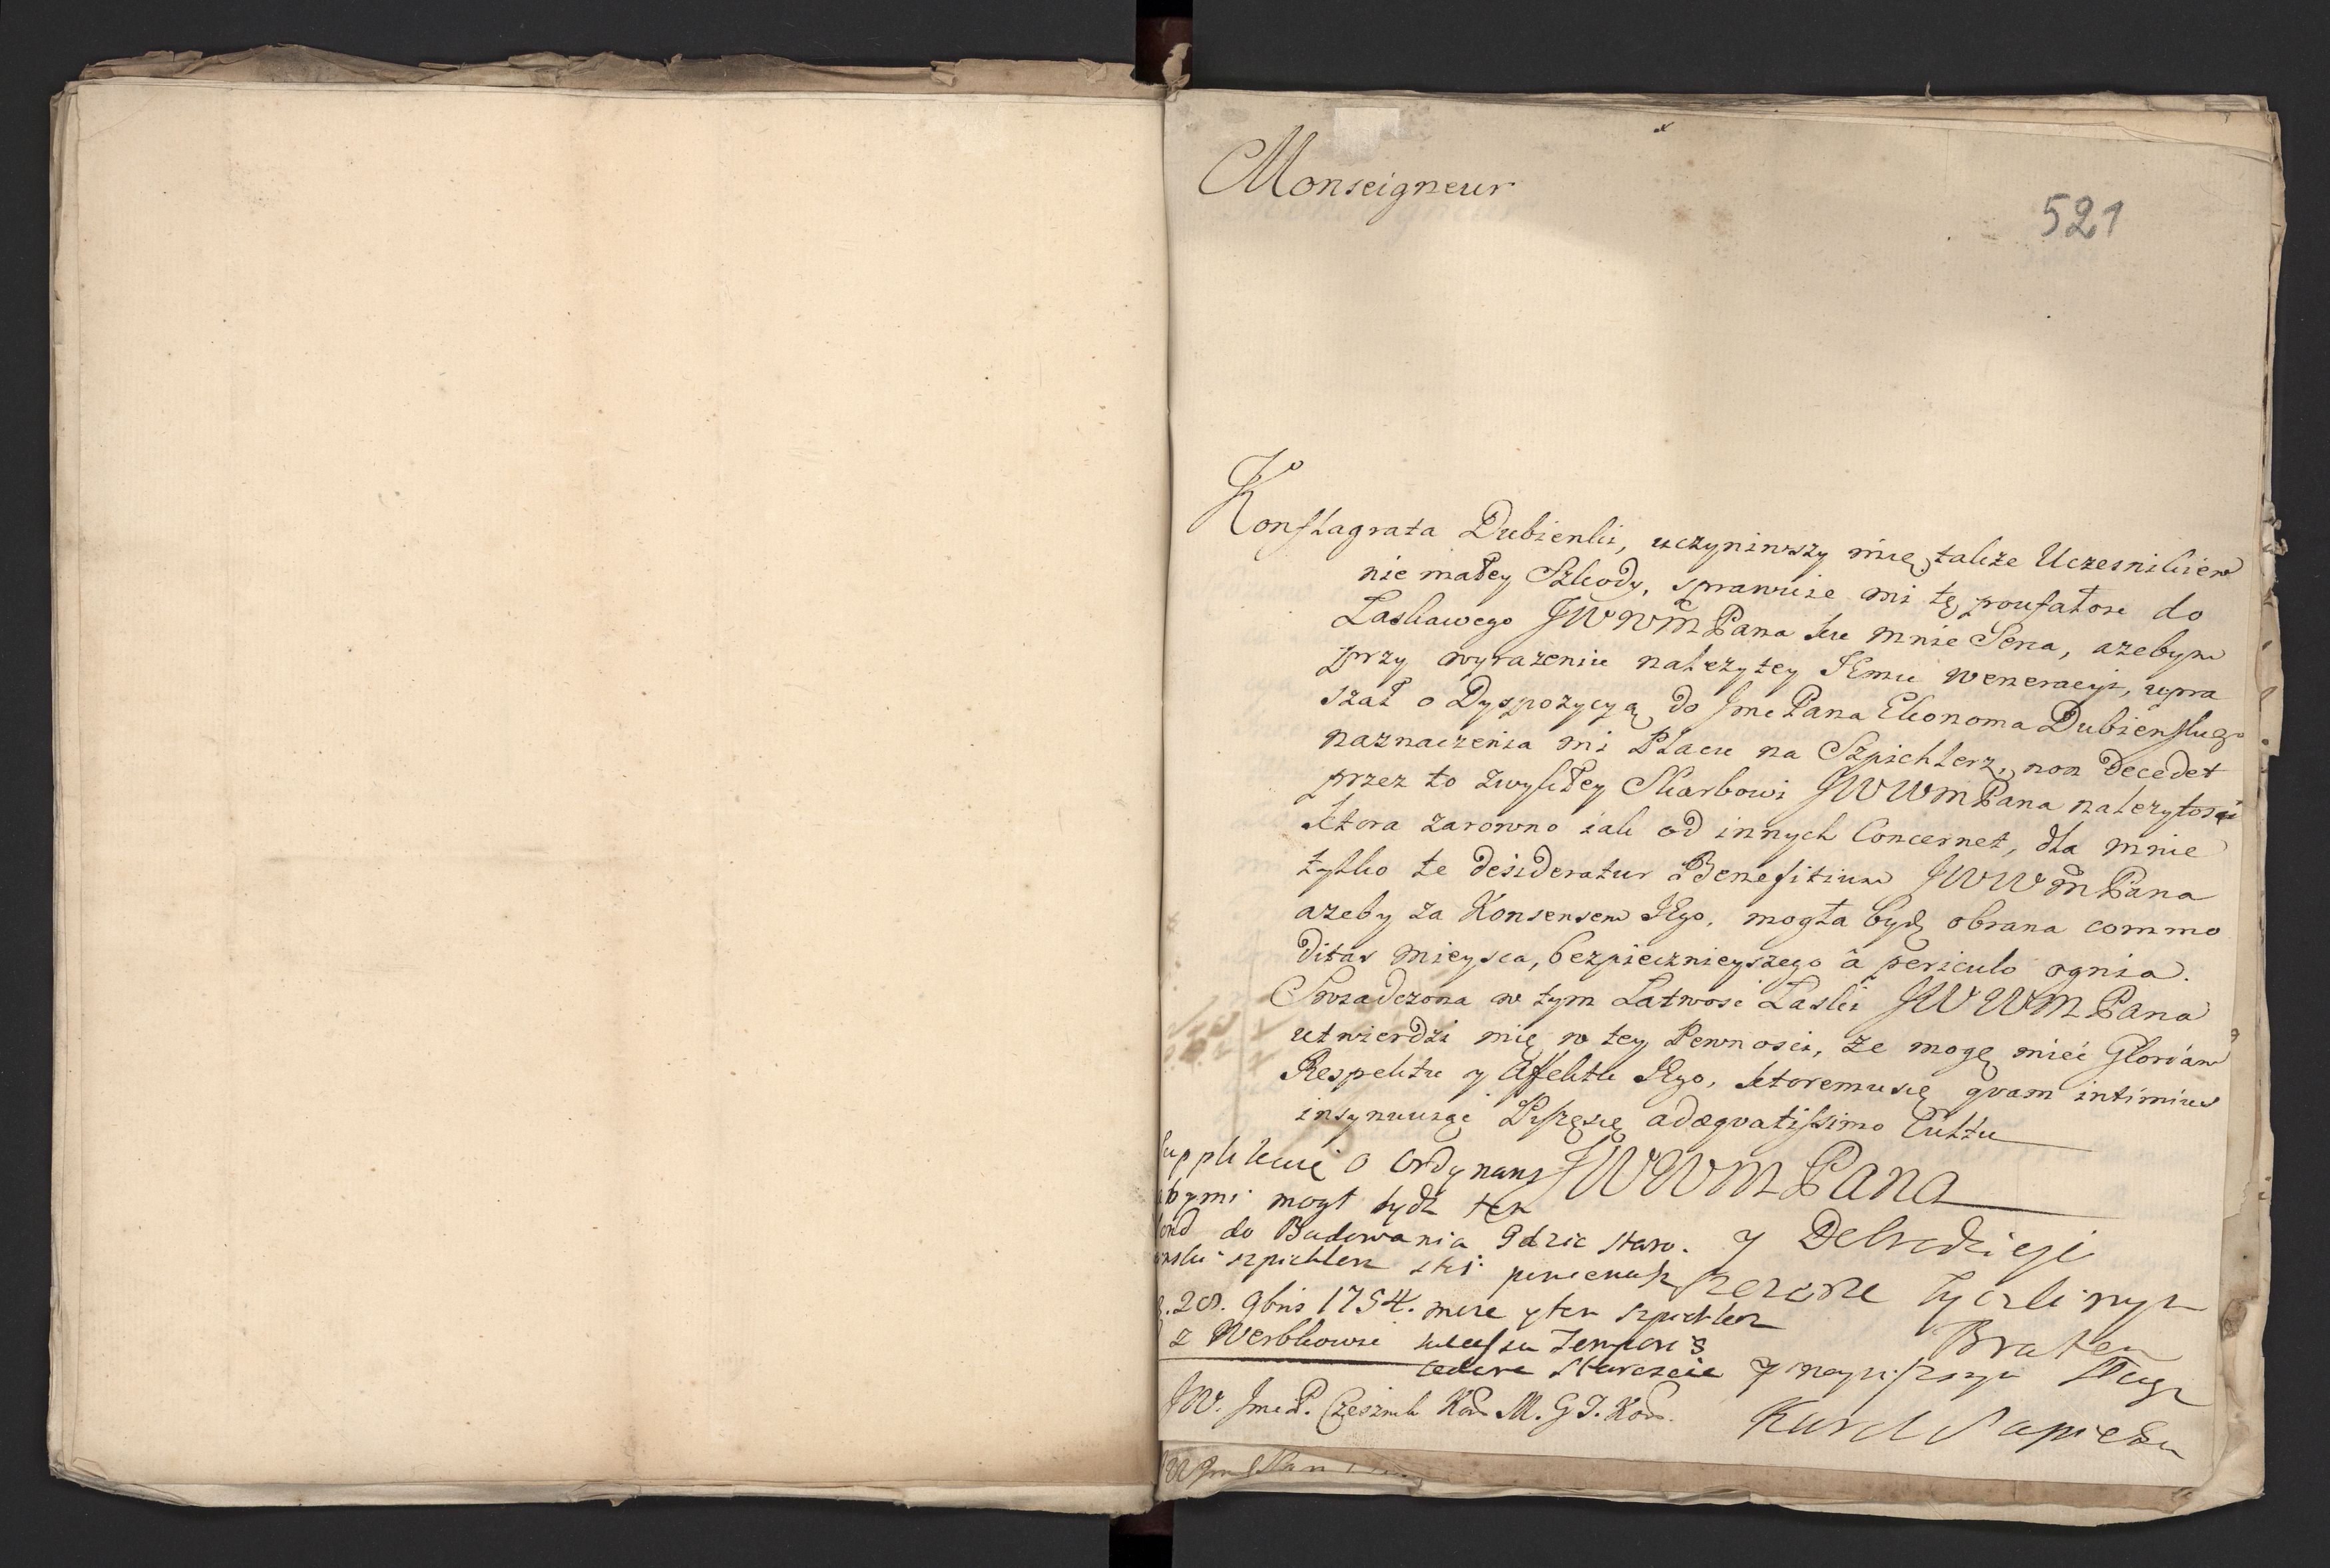 Monseigneur
521
Konflagrata Dubienki, uczyniwszy mię także Uczesnikiem
nie małey Szkody, sprawuie mi tę poufałosc do
Łaskawego JWWM Pana ku mnie Serca, azebym
przy wyrazeniu nalezytey JEmu weneracyi, upra
szał o Dyspozycyą do Jme Pana Ekonoma Dubienskiego
naznaczenia mi Placu na Szpichlerz, non decedet
przez to zwykłey Skarbowi JWWM Pana nalezytosci
ktora zarowno iak od innych Concernet, dla mnie
tylko te desideratur Benefitium JWWM Pana
azeby za Konsensem JEgo, mogła bydz obrana commo
ditas mieysca, bezpiecznieyszego à periculo ognia.
Swiadczona w tym Łatwosc Łaski JWWM Pana
utwierdzi mię w tey Pewnosci, ze mogę mieć Gloriam
Respektu y Afektu JEgo, ktoremu się quam intimius
insynuuiąc Piszę się adæquatissimo Cultu
JWWM Pana
Supplikuię o Ordynans
abymi mogł bydz ten
do Budowania gdzie staro.
szpichlerz stoi poniewasz
20. 9bris 1754. y ten szpichlerz
z Werbkowic temporis
cedere Staroscie
y
szczerze zyczliwym
Bratem
y naynizszym Sługą
Karol Sapieha
JW. Jme P. Czesznik Kor. M. G J. Kor.